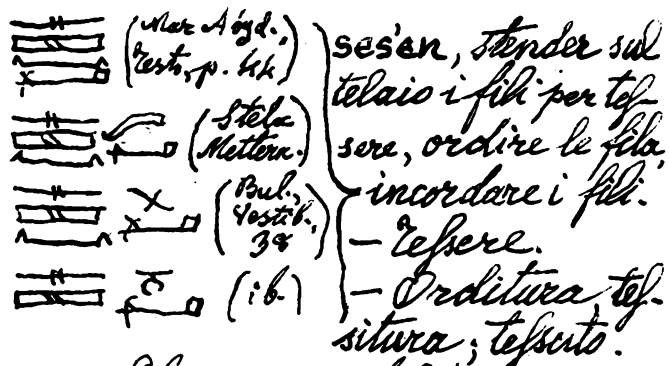 (Mar. Abyd.,
Testo, p. kk)
(Stela
Mettern.)
(Bul.,
Vestib.,
38)
(ib.)
sešen, stender sul
telaio i fili per tes-
sere, ordire le fila,
incordare i fili.
— Tessere.
— Orditura, tes-
situra; tessuto.